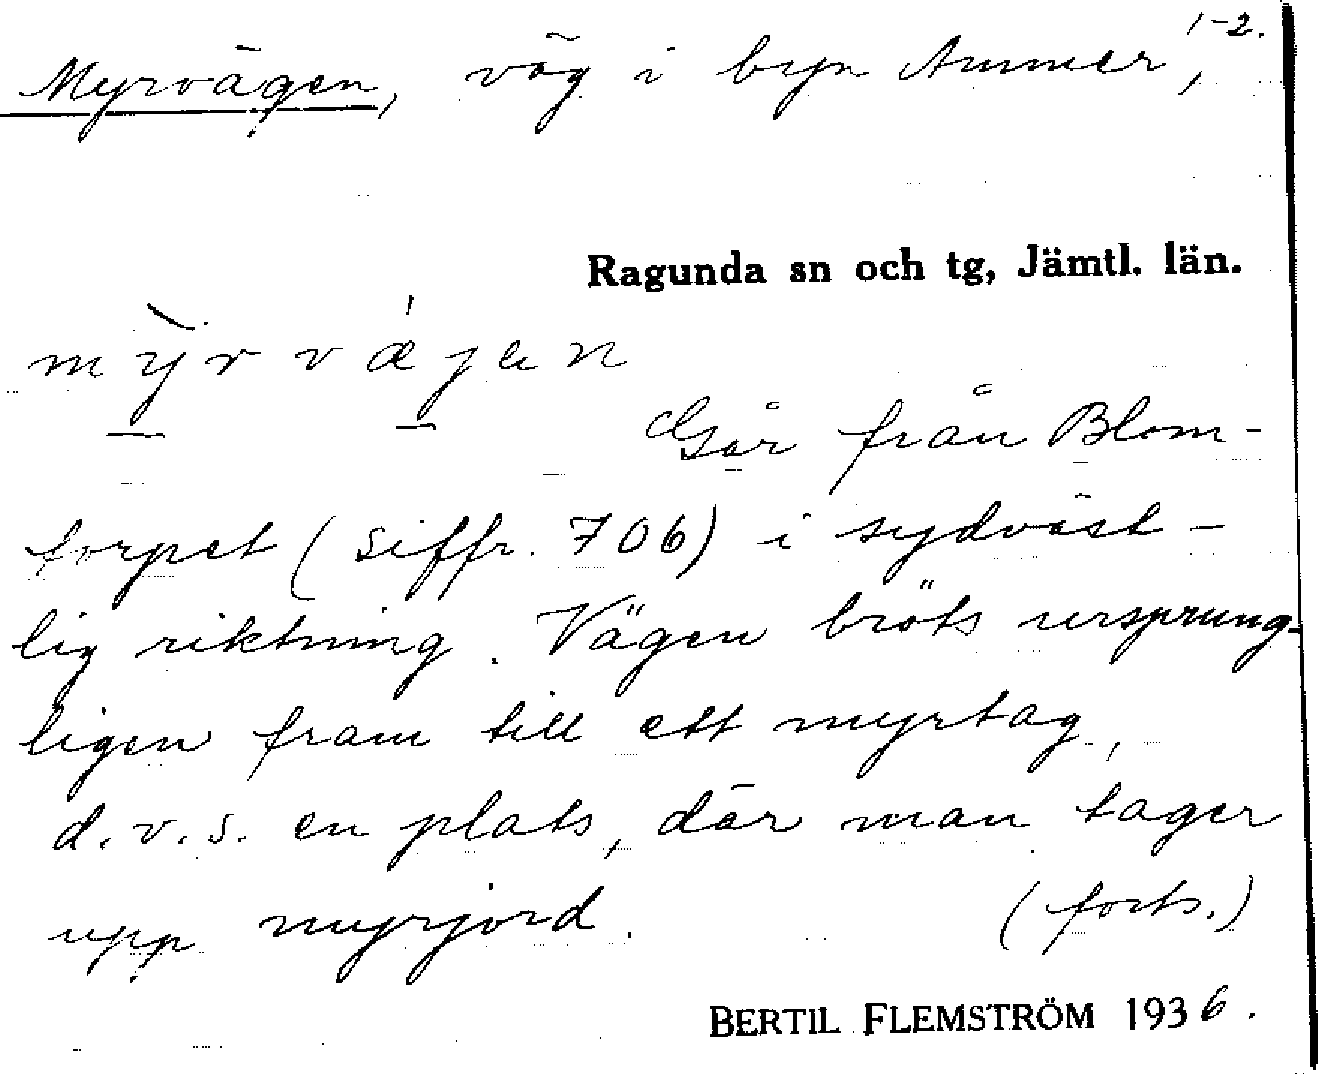 1-2.
Myrvägen, väg i byn Ammer,
Ragunda sn och tg, Jämtl. län.
mỳrvǽjen
Går från Blom-
torpet (siffr. 706) i sydväst-
lig riktning. Vägen bröts ursprung-
ligen fram till ett myrtag,
d.v.s. en plats, där man tager
upp myrjord. (forts.)
BERTIL FLEMSTRÖM 1936.